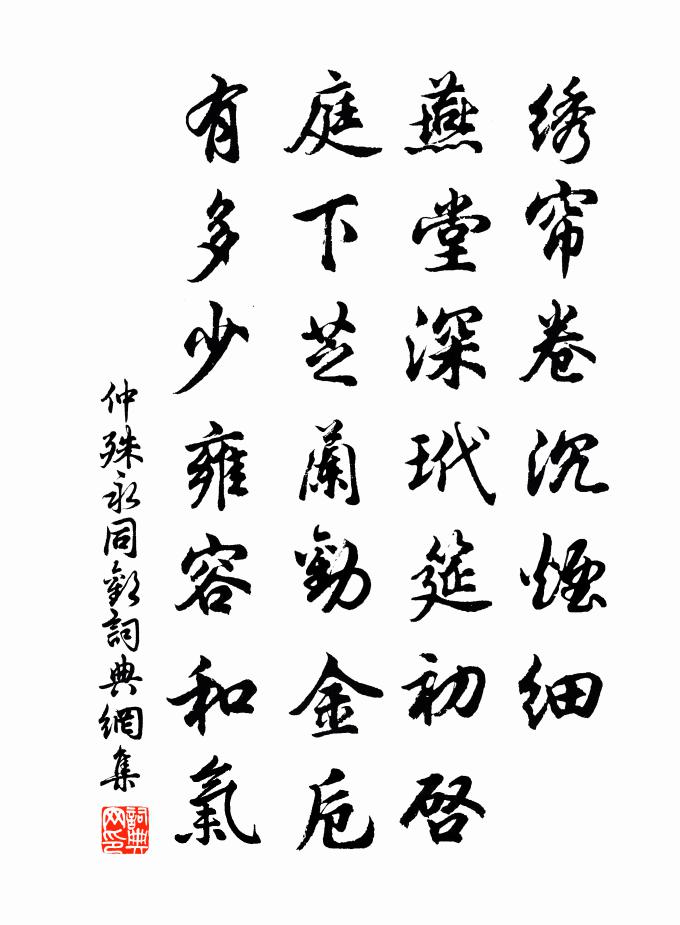 绣帘卷沉煙细
燕堂深玳筵初啓
庭下芝蘭勸金卮
有多少雍容和氣
仲殊永同歡詞典網集
詞典网印